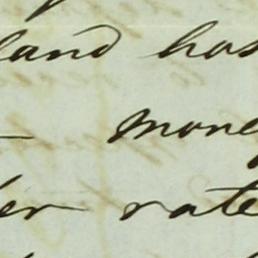 land has
money
er rate